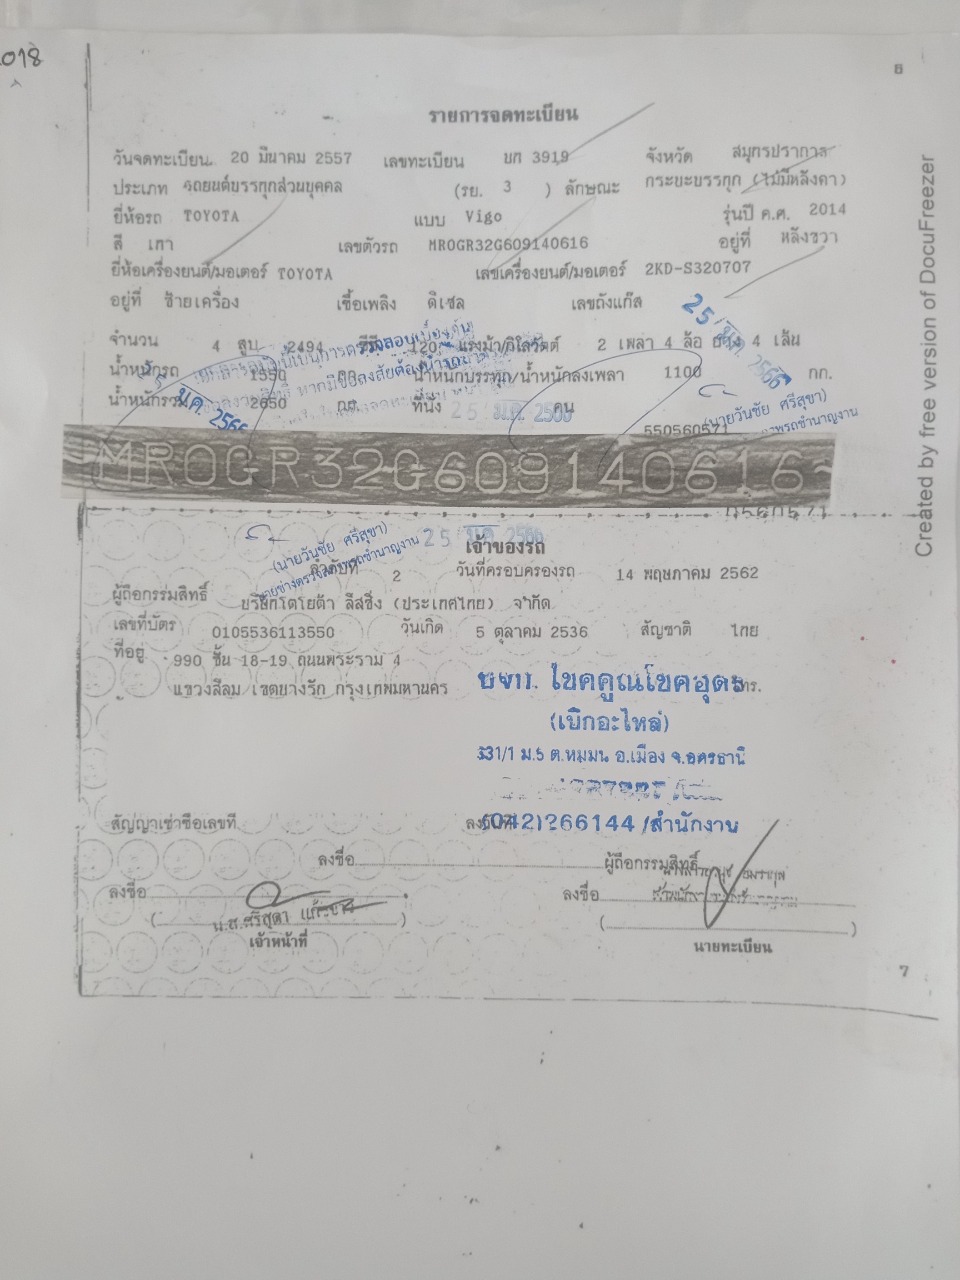 018
6
รายการจดทะเบียน
วันจดทะเบียน 20 มีนาคม 2557 เลขทะเบียน บท 3919 จังหวัด สมุทรปราการ
ประเภท รถยนต์บรรทุกส่วนบุคคล (รย. 3 ) ลักษณะ กระบะบรรทุก (ไม่มีหลังคา)
ยี่ห้อรถ TOYOTA แบบ Vigo รุ่นปี ค.ศ. 2014
สี เทา เลขตัวรถ MR0GR32G609140616 อยู่ที่ หลังขวา
ยี่ห้อเครื่องยนต์/มอเตอร์ TOYOTA เลขเครื่องยนต์/มอเตอร์ 2KD-S320707
อยู่ที่ ซ้ายเครื่อง เชื้อเพลิง ดีเซล เลขถังแก๊ส
จำนวน 4 สูบ 2494 ซีซี 120 แรงม้า/กิโลวัตต์ 2 เพลา 4 ล้อ ยาง 4 เส้น
น้ำหนักรถ 1550 กก. น้ำหนักบรรทุก/น้ำหนักลงเพลา 1100 กก.
น้ำหนักรวม 2650 กก. ที่นั่ง คน
25 ม.ค. 2566
25 ม.ค. 2566
(นายวันชัย ศรีสุขา)
550560571
MR0GR32G609140616
(นายวันชัย ศรีสุขา)
25 ม.ค. 2566
เจ้าของรถ
ลำดับที่ 2 วันที่ครอบครองรถ 14 พฤษภาคม 2562
ผู้ถือกรรมสิทธิ์ บริษัทโตโยต้า ลีสซิ่ง (ประเทศไทย) จำกัด
เลขที่บัตร 0105536113550 วันเกิด 5 ตุลาคม 2536 สัญชาติ ไทย
ที่อยู่ 990 ชั้น 18-19 ถนนพระราม 4
แขวงสีลม เขตบางรัก กรุงเทพมหานคร
หจก. โชคคูณโชคอุดร
โทร.
(เบิกอะไหล่)
331/1 ม.5 ต.หมูม่น อ.เมือง จ.อุดรธานี
(042)266144/สำนักงาน
สัญญาเช่าซื้อเลขที่ ลงวันที่
ลงชื่อ ผู้ถือกรรมสิทธิ์
ลงชื่อ ลงชื่อ
น.ส.ศริสุดา
เจ้าหน้าที่ นายทะเบียน
7
Created by free version of DocuFreezer